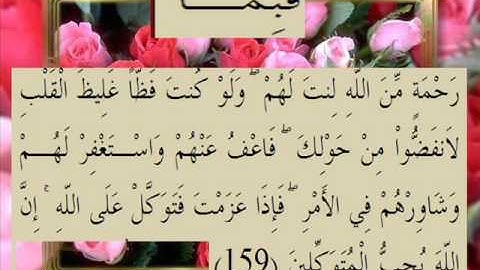 فَبِمَا
رَحْمَةٍ مِّنَ اللَّهِ لِنتَ لَهُمْ ۖ وَلَوْ كُنتَ فَظًّا غَلِيظَ الْقَلْبِ
لَانفَضُّوا مِنْ حَوْلِكَ ۖ فَاعْفُ عَنْهُمْ وَاسْتَغْفِرْ لَهُمْ
وَشَاوِرْهُمْ فِي الْأَمْرِ ۖ فَإِذَا عَزَمْتَ فَتَوَكَّلْ عَلَى اللَّهِ ۚ إِنَّ
اللَّهَ يُحِبُّ الْمُتَوَكِّلِينَ (159)